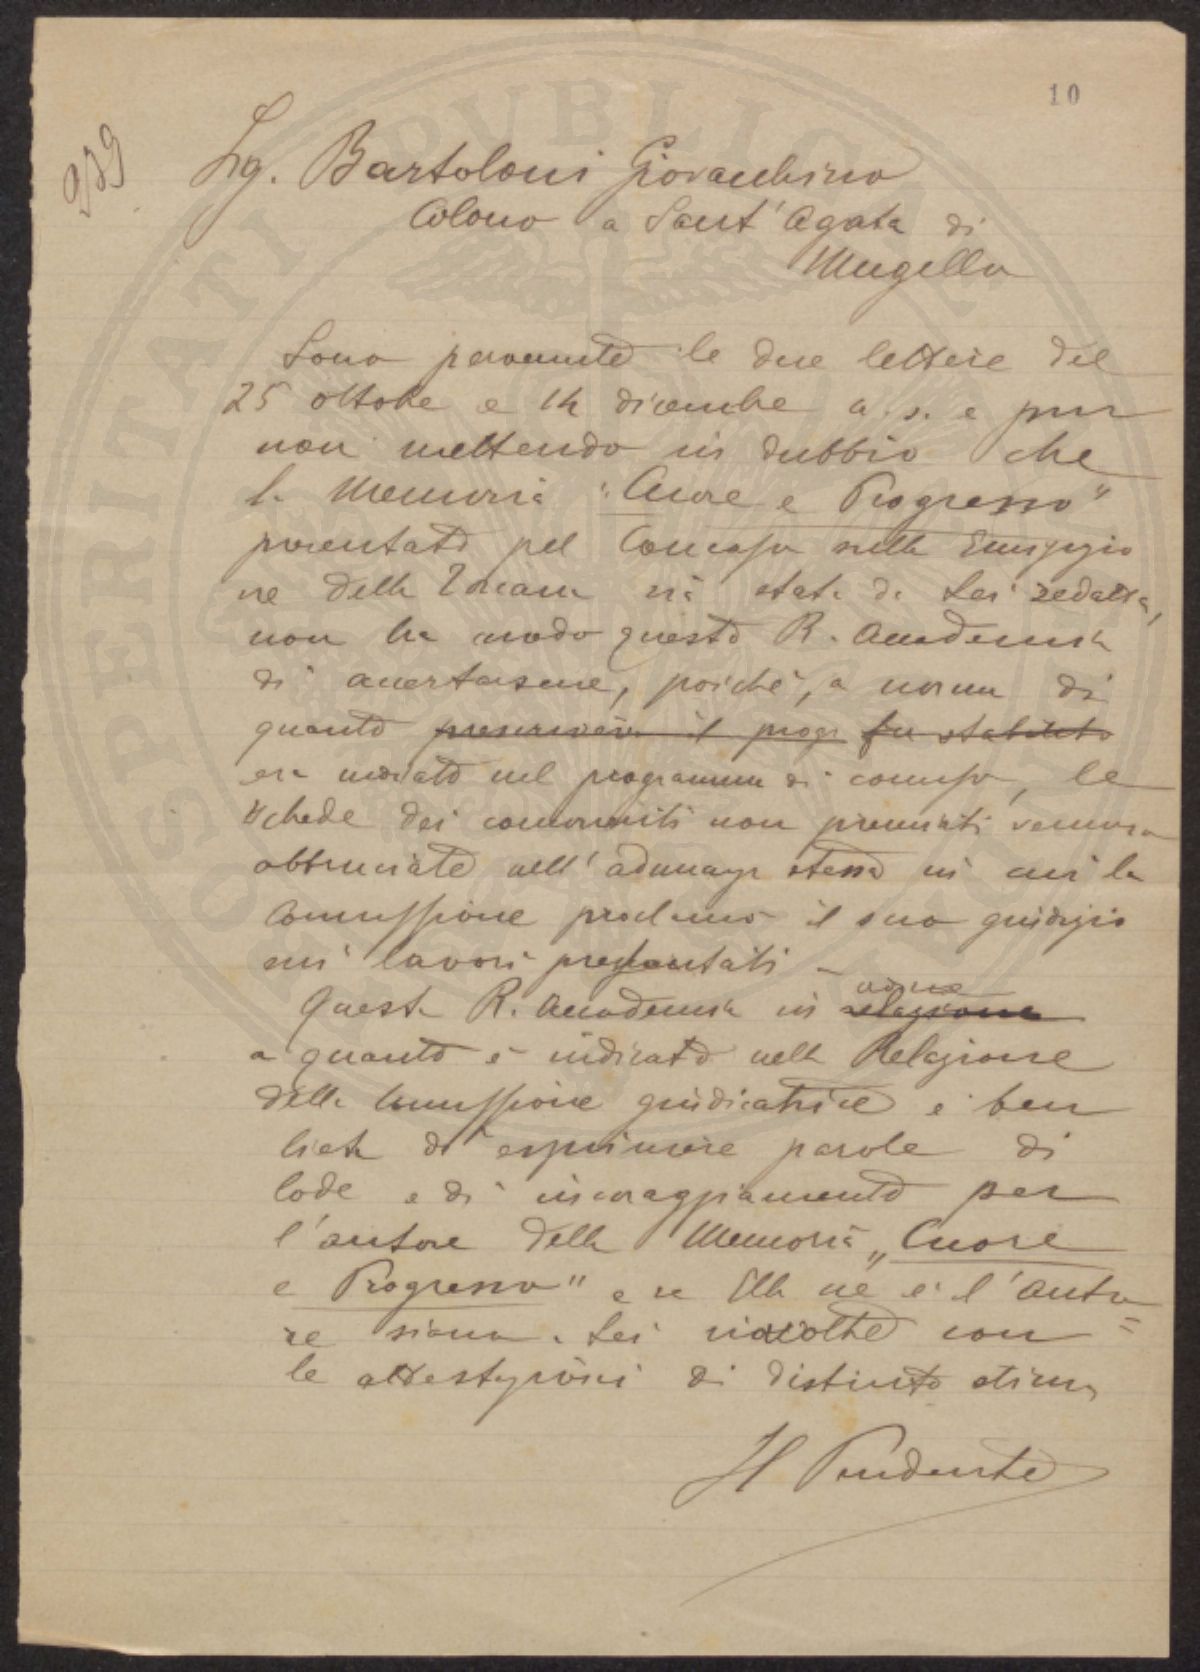 10
939
Sig. Bartoloni Giovacchino
Colono a Sant'Agata di
Mugello
Sono pervenute le due lettere del
25 ottobre e 14 dicembre a. s. e pur
non mettendo in dubbio che
la Memoria "Cuore e Progresso"
presentata pel Concorso sulla Emigrazio
ne della Toscana sia stata da Lei redatta,
non ha modo questa R. Accademia
di accertarsene, poichè, a norma di
quanto prescriveva il progr fu stabilito
era indicato nel programma di concorso, le
schede dei concorrenti non premiati vennero
abbruciate nell'adunanza stessa in cui la
Commissione proclamò il suo giudizio
sui lavori presentati -
Questa R. Accademia in relazione
a quanto è indicato nella Relazione
della Commissione giudicatrice è ben
lieta di esprimere parole di
lode e di incoraggiamento per
l'autore della Memoria "Cuore
e Progresso" e se Ella ne è l'Auto
re siano a Lei rivolte con
le attestazioni di distinta stima
Il Presidente
PROSPERITATI PUBLICAE